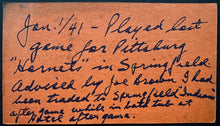 Jan. 1/41 - Played last
game for Pittsburg
"Hornets" in Springfield
Advised by Joe Brown I had
been traded to Springfield Indians
after game while in bath tub at
Hotel after game.